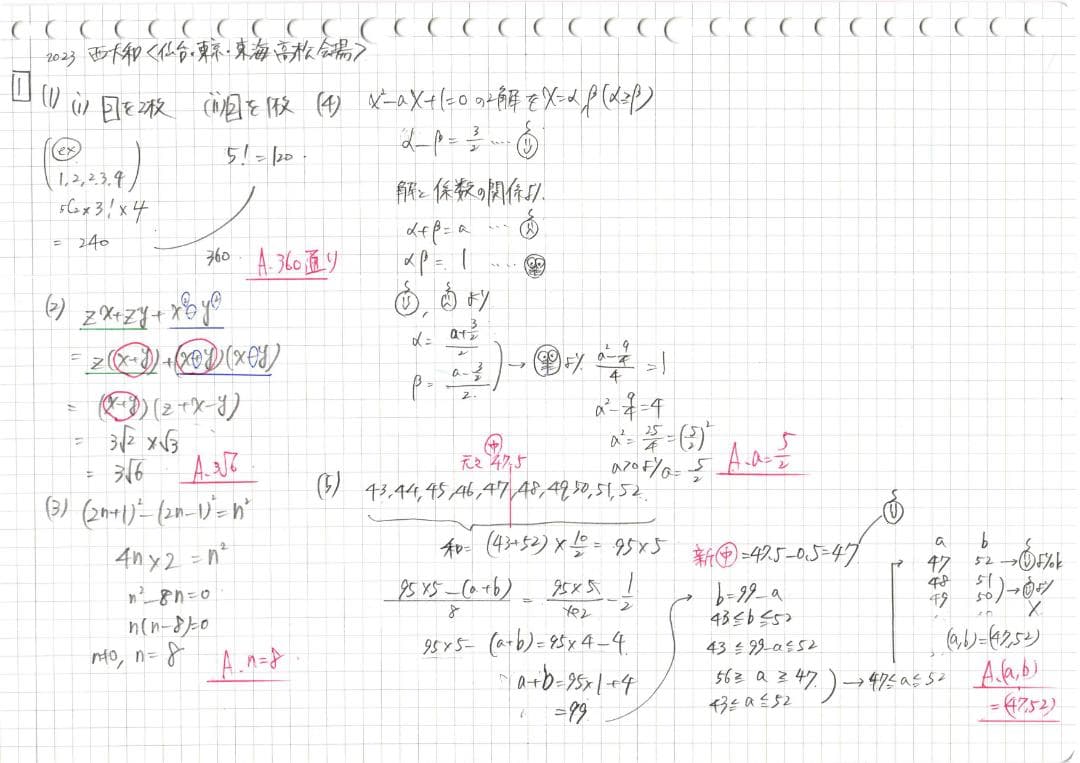 2023 西大和<仙台・東京・東海・高松会場>
1
(1) (i) 2を2枚 (ii) 2を1枚
(ex)
1,2,2,3,4
5C2×3!×4
= 240
5! = 120.
360.
A. 360通り
(2) zx+zy+x²-y²
= z(x+y)+(x+y)(x-y)
= (x+y)(z+x-y)
= 3√2 ×√3
= 3√6
A. 3√6
(3) (2n+1)²-(2n-1)²=n²
4n×2 = n²
n²-8n=0
n(n-8)=0
n≠0, n=8
A. n=8
(4) x²-ax+1=0の2解をx=α,β(α≧β)
α-β= 3/2 ....
解と係数の関係より.
α+β=a ...
αβ= 1 ....
, より
α= (a+3/2)/2
β= (a-3/2)/2.
→ より (a²-9/4)/4 =1
a²-9/4=4
a²=25/4=(5/2)²
a>0よりa=5/2
A. a=5/2
(5)
中
元々 47.5
43,44,45,46,47,48,49,50,51,52.
和= (43+52)×10/2= 95×5
(95×5-(a+b))/8 = (95×5)/(5×2) - 1/2
95×5-(a+b)=95×4-4
a+b=95×1+4
=99
新中=47.5-0.5=47
b=99-a
43≦b≦52
43≦99-a≦52
56≧a≧47
43≦a≦52
→ 47≦a≦52
a b
47 52 → よりok
48 51
49 50 → より
×
(a,b)=(47,52)
A. (a,b)
=(47,52)